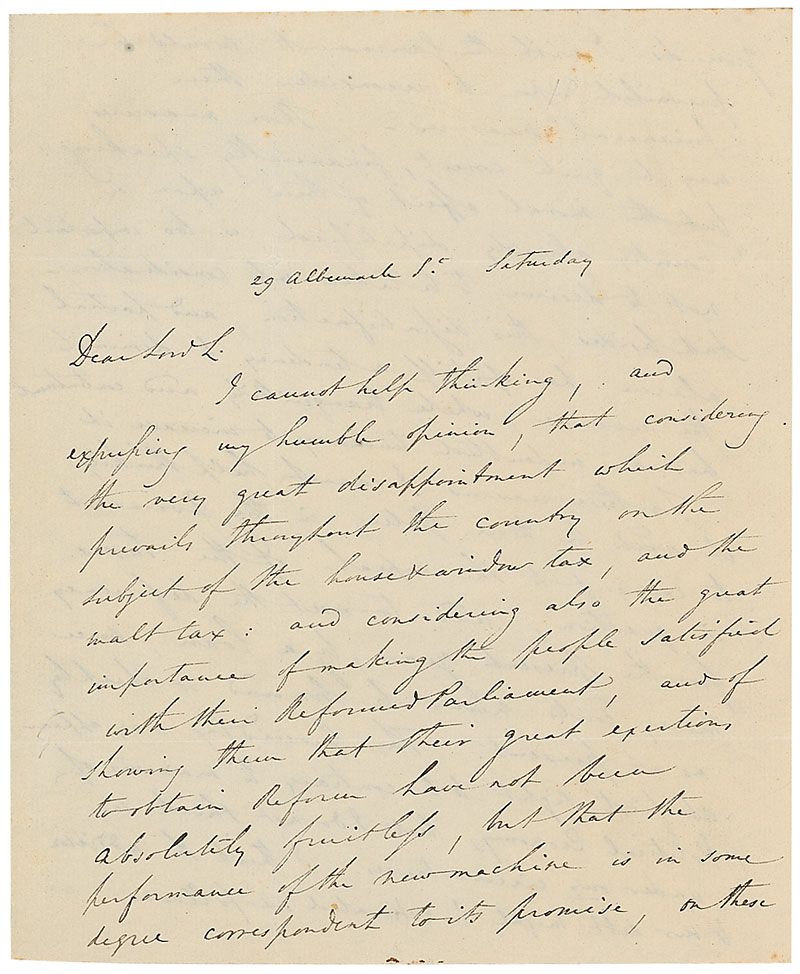 29 Albemarle St. Saturday
Dear Lord L.
I cannot help thinking, and
expressing my humble opinion, that considering
the very great disappointment which
prevails throughout the country on the
subject of the house & window tax, and the
malt tax: and considering also the great
importance of making the people satisfied
with their Reformed Parliament, and of
showing them that their great exertions
to obtain Reform have not been
absolutely fruitless, but that the
performance of the new machine is in some
degree correspondent to its promise, on these